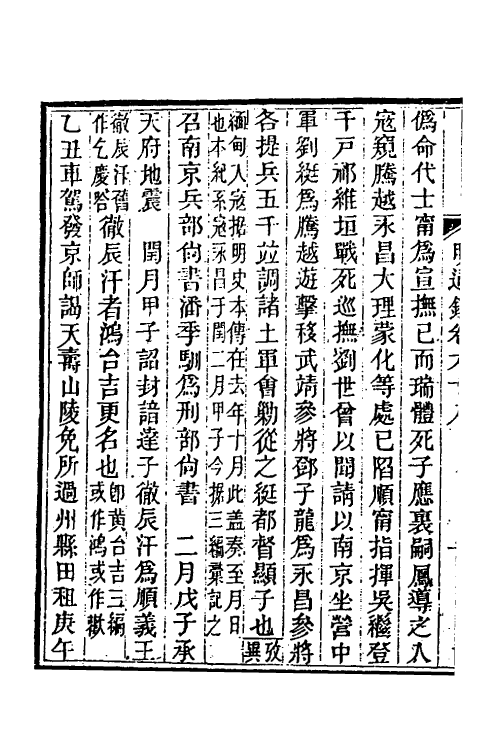 偽命代士甯為宣撫已而瑞體死子應裏嗣鳳導之入
寇窺騰越永昌大理蒙化等處已陷順甯指揮吳繼登
千戸祁維垣戰死巡撫劉世曾以聞請以南京坐營中
軍劉綎為騰越遊擊移武靖參將鄧子龍為永昌參將
各提兵五千並調諸土軍會勦從之綎都督顯子也攷異
緬甸人寇據明史本傳在去年十月此盖奏至月日
也本紀系寇永昌于閏二月甲子今據三編彙記之
召南京兵部尙書潘季馴為刑部尙書　二月戊子承
天府地震　閏月甲子詔封諳達子徹辰汗為順義王
徹辰汗舊
作乞慶哈徹辰汗者鴻台吉更名也卽黄台吉三編
或作鴻或作歡
乙丑車駕發京師謁天壽山陵免所過州縣田租庚午